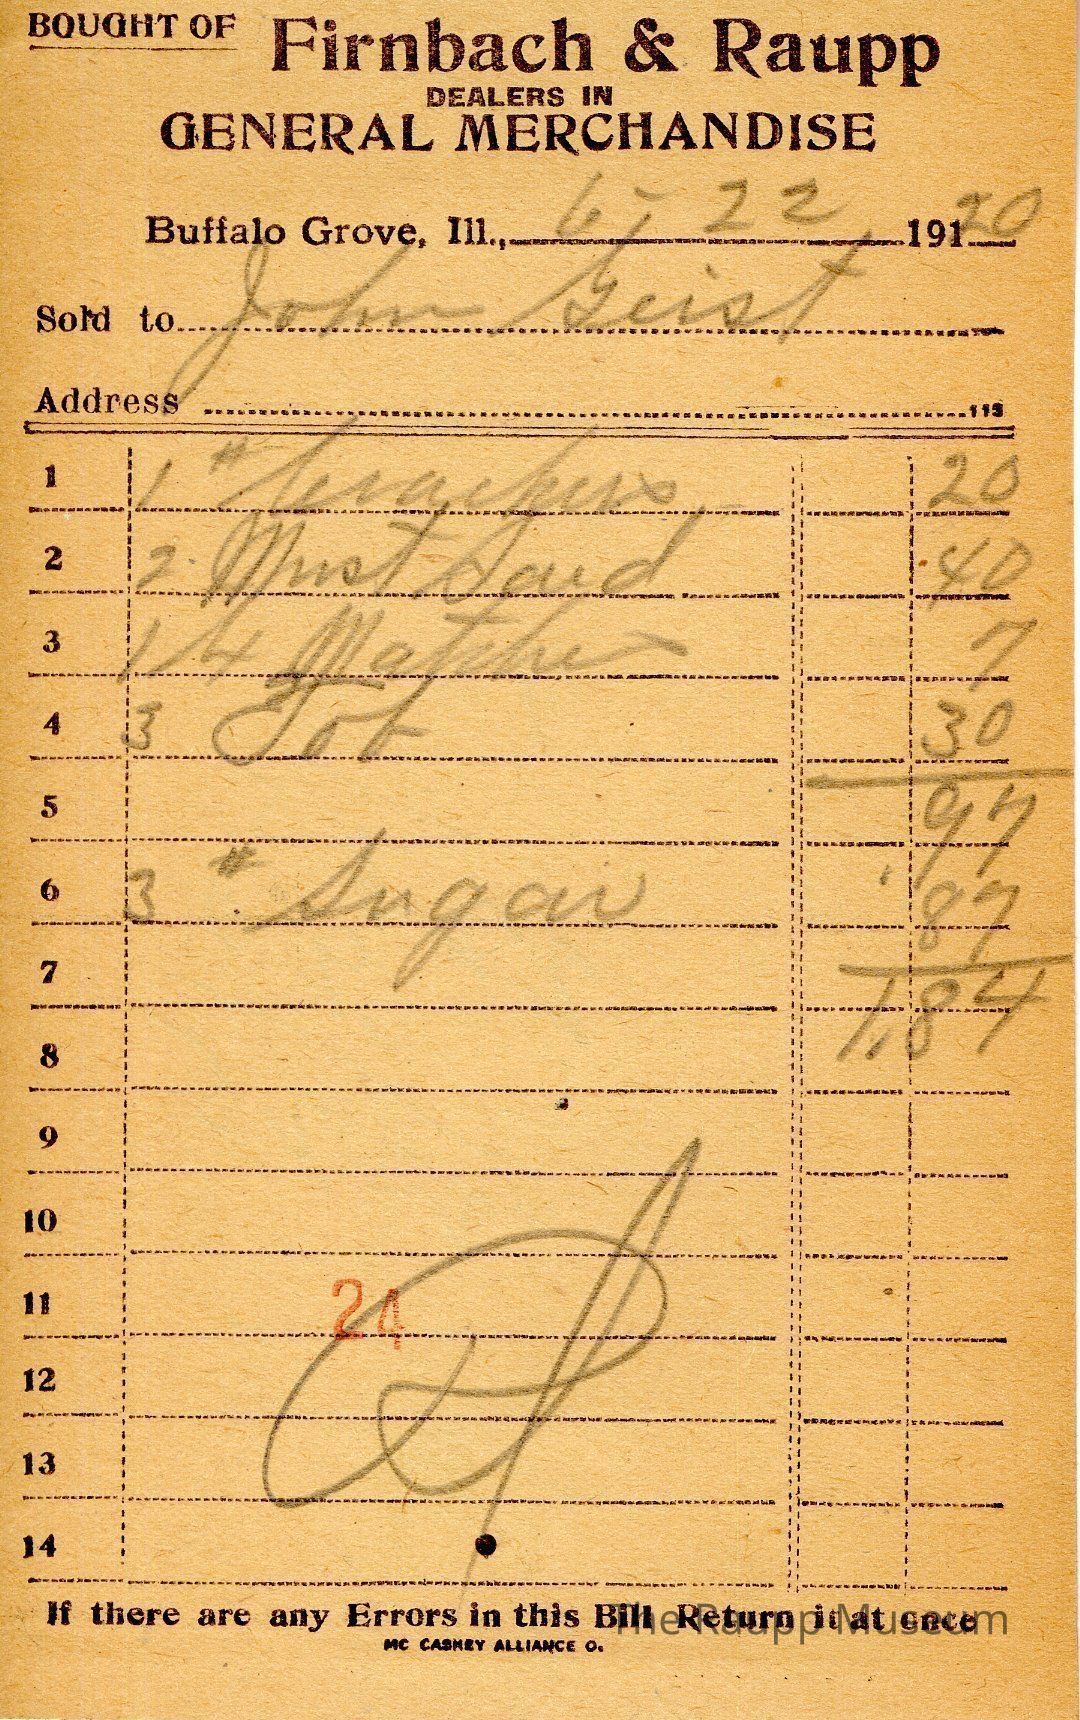 BOUGHT OF Firnbach & Raupp
DEALERS IN
GENERAL MERCHANDISE
Buffalo Grove, Ill., 6-22 191 20
Sold to John Geist
Address
115
1 1 # Crackers 20
2 2 Mustard 40
3 1 4 Matches 7
4 3 Tob 30
5 97
6 3 # Sugar 87
7 1.84
8
9
10
11 24
12
13
14
If there are any Errors in this Bill Return it at once
The Raupp Museum
MC CASKEY ALLIANCE O.